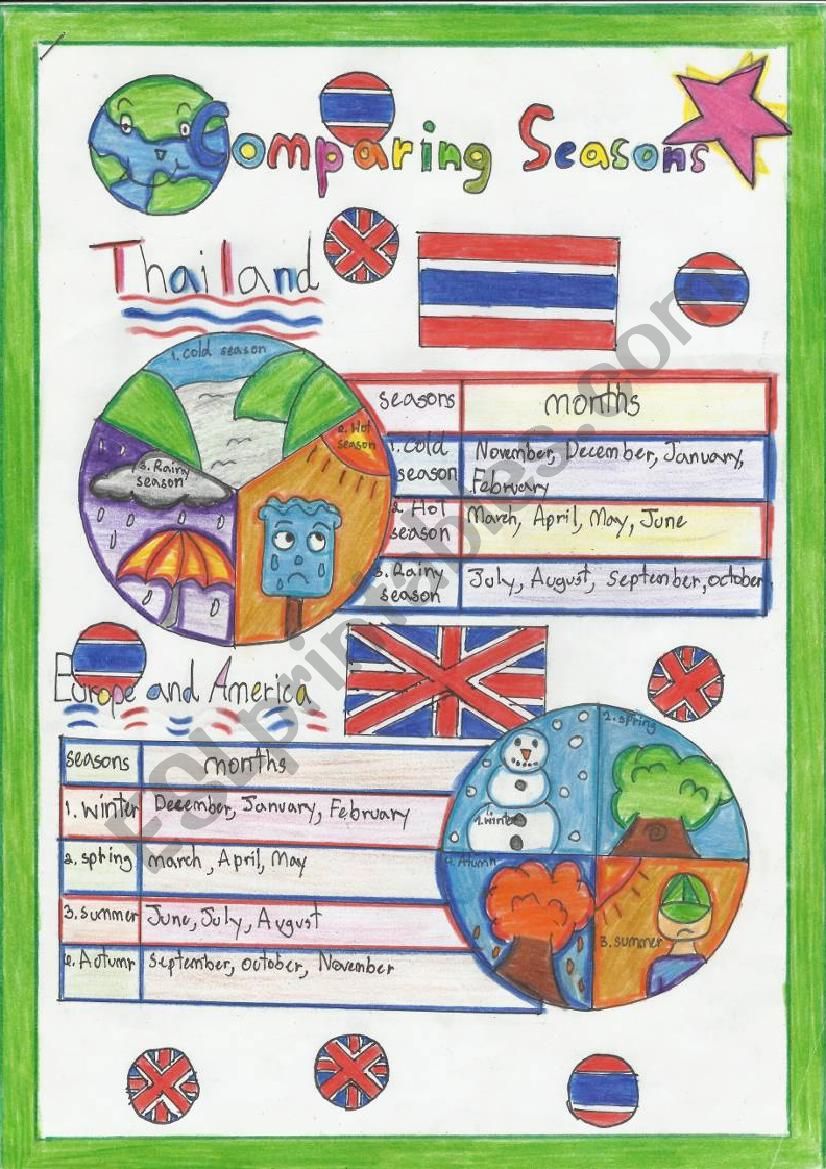 Comparing Seasons
Thailand
1. cold season
2. Hot
season
3. Rainy
season
seasons months
1. Cold
season
November, December, January,
February
2. Hot
season
March, April, May, June
3. Rainy
season
July, August, september, october
Europe and America
seasons months
1. winter December, January, February
2. spring march, April, May
3. summer June, July, August
4. Autumn september, october, November
1. winter
2. spring
3. summer
4. Atumn
ESLprintables.com